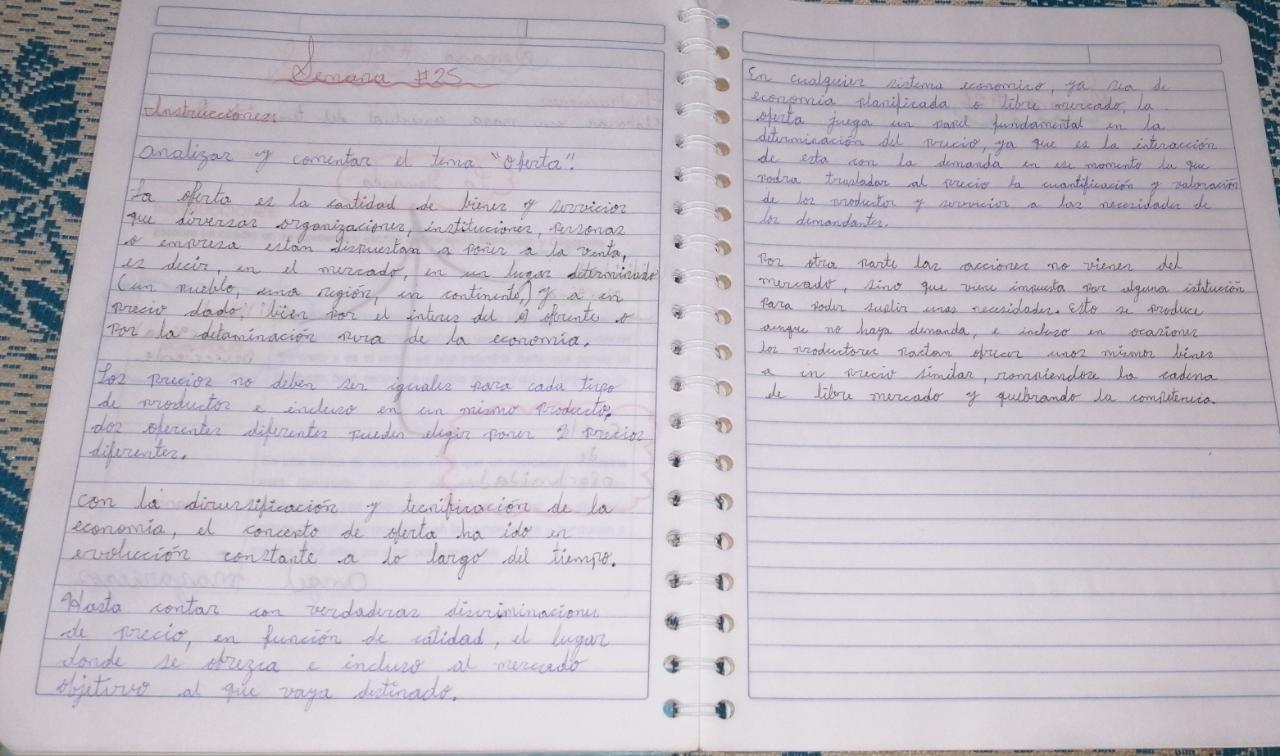 Semana #25
Instrucciones:
analizar y comentar el tema "Oferta".
La oferta es la cantidad de bienes y servicios
que diversas organizaciones, instituciones, personas
o empresa están dispuestan a poner a la venta,
es decir, en el mercado, en un lugar determinado
(un pueblo, una región, un continente,) y a un
precio dado, bien por el interes del oferente o
por la detaminación pura de la economía.
Los precios no deben ser iguales para cada tipo
de productos e incluso en un mismo producto,
dos oferentes diferentes pueden eligir poner 2 precios
diferentes.
con la diversificación y tecnificación de la
economía, el concepto de oferta ha ido en
evolucción constante a lo largo del tiempo.
Hasta contar con verdaderas discriminaciones
de precio, en función de calidad, el lugar
donde se obrezca e incluso al mercado
objetivo al que vaya distinado.
En cualquier sistema economico, ya sea de
economía planificada o libre mercado, la
oferta juega un papel fundamental en la
determinación del precio, ya que es la interacción
de esta con la demanda en ese momento la que
podra trasladar al precio la cuantificación y valoración
de los productos y servicios a las necesidades de
los demandantes.
Por otra parte las acciones no vienen del
mercado, sino que viene impuesta por alguna istitución
para poder suplir unas necesidades. Esto se produce
aunque no haya demanda, e incluso en ocasiones
los productores pactan ofrecer unos mismos bines
a un precio similar, rompiendose la cadena
de libre mercado y quebrando la competencia.